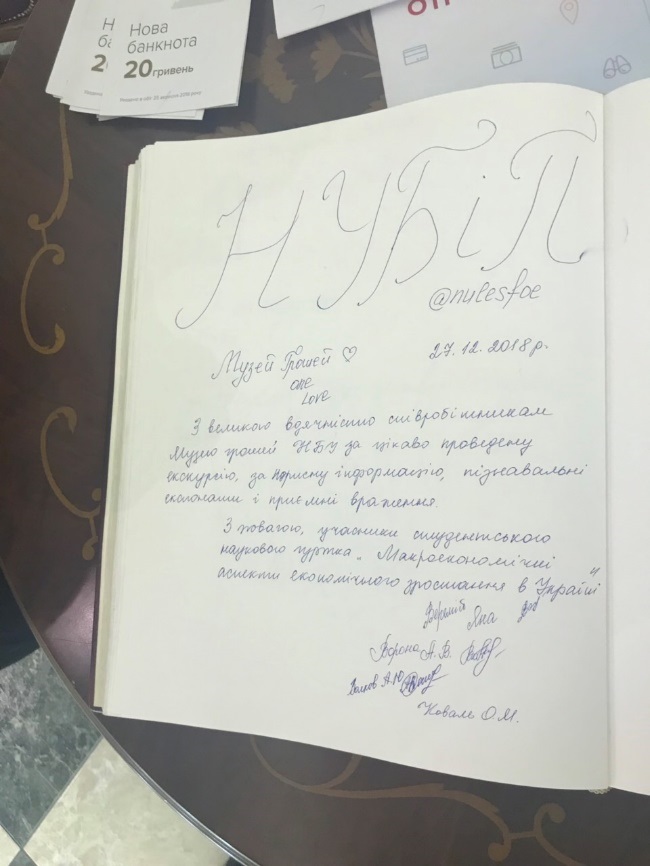 Нова
банкнота
20 гривень
НУБіП
@nulesfoe
Музей Грошей ♡
27.12.2018 р.
one
love
З великою вдячністю співробітникам
Музею грошей НБУ за цікаво проведену
екскурсію, за корисну інформацію, пізнавальні
експонати і приємні враження.
З повагою, учасники студентського
наукового гуртка „Макроекономічні
аспекти економічного зростання в Україні"
Яна
Ворона А. В.
Волков А.Ю.
Коваль О.М.